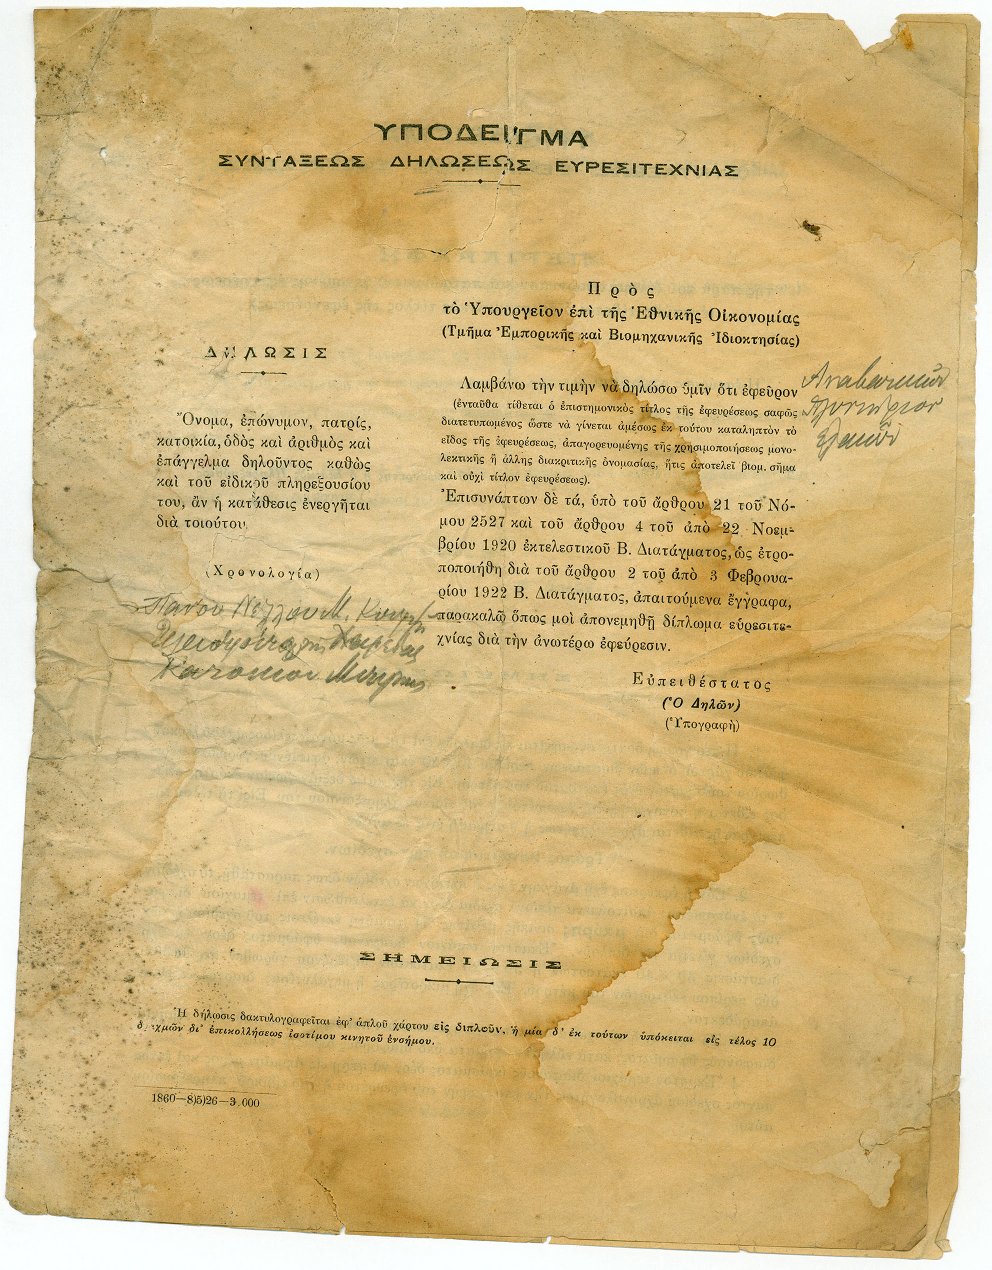 ΥΠΟΔΕΙΓΜΑ
ΣΥΝΤΑΞΕΩΣ ΔΗΛΩΣΕΩΣ ΕΥΡΕΣΙΤΕΧΝΙΑΣ
Πρὸς
τὸ Ὑπουργεῖον ἐπὶ τῆς Ἐθνικῆς Οἰκονομίας
(Τμῆμα Ἐμπορικῆς καὶ Βιομηχανικῆς Ἰδιοκτησίας)
ΔΗΛΩΣΙΣ
Ὄνομα, ἐπώνυμον, πατρίς,
κατοικία, ὁδὸς καὶ ἀριθμὸς καὶ
ἐπάγγελμα δηλοῦντος καθὼς
καὶ τοῦ εἰδικοῦ πληρεξουσίου
του, ἂν ἡ κατάθεσις ἐνεργῆται
διὰ τοιούτου.
(Χρονολογία)
Πάνου
Κατοικου
Λαμβάνω τὴν τιμὴν νὰ δηλώσω ὑμῖν ὅτι ἐφεῦρον
(ἐνταῦθα τίθεται ὁ ἐπιστημονικὸς τίτλος τῆς ἐφευρέσεως σαφῶς
διατετυπωμένος ὥστε νὰ γίνεται ἀμέσως ἐκ τούτου καταληπτὸν τὸ
εἶδος τῆς ἐφευρέσεως, ἀπαγορευομένης τῆς χρησιμοποιήσεως μονο-
λεκτικῆς ἢ ἄλλης διακριτικῆς ὀνομασίας, ἥτις ἀποτελεῖ βιομ. σῆμα
καὶ οὐχὶ τίτλον ἐφευρέσεως).
Ἐπισυνάπτων δὲ τά, ὑπὸ τοῦ ἄρθρου 21 τοῦ Νό-
μου 2527 καὶ τοῦ ἄρθρου 4 τοῦ ἀπὸ 22 Νοεμ-
βρίου 1920 ἐκτελεστικοῦ Β. Διατάγματος, ὡς ἐτρο-
ποποιήθη διὰ τοῦ ἄρθρου 2 τοῦ ἀπὸ 3 Φεβρουα-
ρίου 1922 Β. Διατάγματος, ἀπαιτούμενα ἔγγραφα,
παρακαλῶ ὅπως μοὶ ἀπονεμηθῇ δίπλωμα εὑρεσιτε-
χνίας διὰ τὴν ἀνωτέρω ἐφεύρεσιν.
Εὐπειθέστατος
(Ὁ Δηλῶν)
(Ὑπογραφὴ)
Πλυντήριον
ΣΗΜΕΙΩΣΙΣ
Ἡ δήλωσις δακτυλογραφεῖται ἐφ' ἁπλοῦ χάρτου εἰς διπλοῦν, ἡ μία δ' ἐκ τούτων ὑπόκειται εἰς τέλος 10
δραχμῶν δι' ἐπικολλήσεως ἰσοτίμου κινητοῦ ἐνσήμου.
1860—8)5)26—3.000